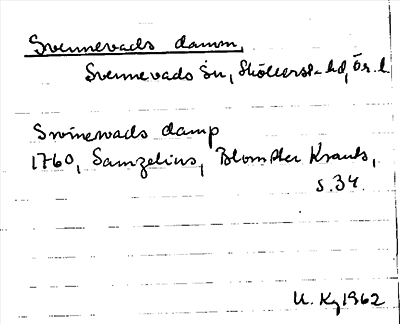 Svennevads damm,
Svennevads sn, Sköllerst. hd, Ör. l.
Svinevads damp
1760, Samzelius, Blomster Krants,
s. 34.
U. Kg 1962